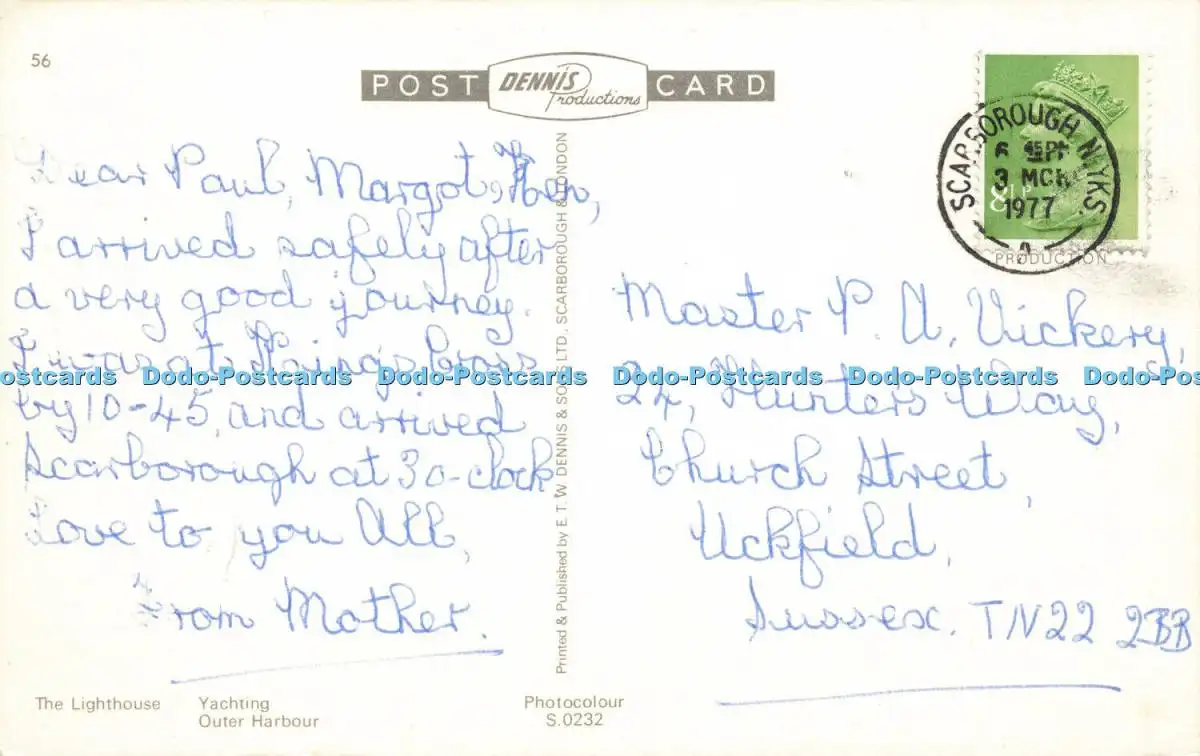 56
POST DENNIS Productions CARD
SCARBOROUGH N. YKS.
6 45 PM
3 MCH
1977
8½P
PRODUCTION
Dear Paul, Margot, Ken,
I arrived safely after
a very good journey.
I was at Kings Cross
by 10-45, and arrived
Scarborough at 3 o-clock
Love to you All,
From Mother.
Printed & Published by E.T.W DENNIS & SONS LTD., SCARBOROUGH & LONDON
Master P. A. Vickery,
24, Hunters Way,
Church Street,
Uckfield,
Sussex. TN22 2BB
Dodo-Postcards Dodo-Postcards Dodo-Postcards Dodo-Postcards Dodo-Postcards
The Lighthouse Yachting
Outer Harbour
Photocolour
S.0232